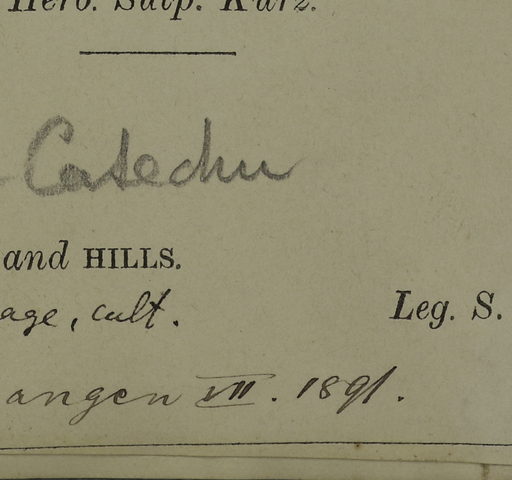 Herb. Sulp. Kurz.
Catechu
and HILLS.
age, cult.
Leg. S.
angen VII. 1891.